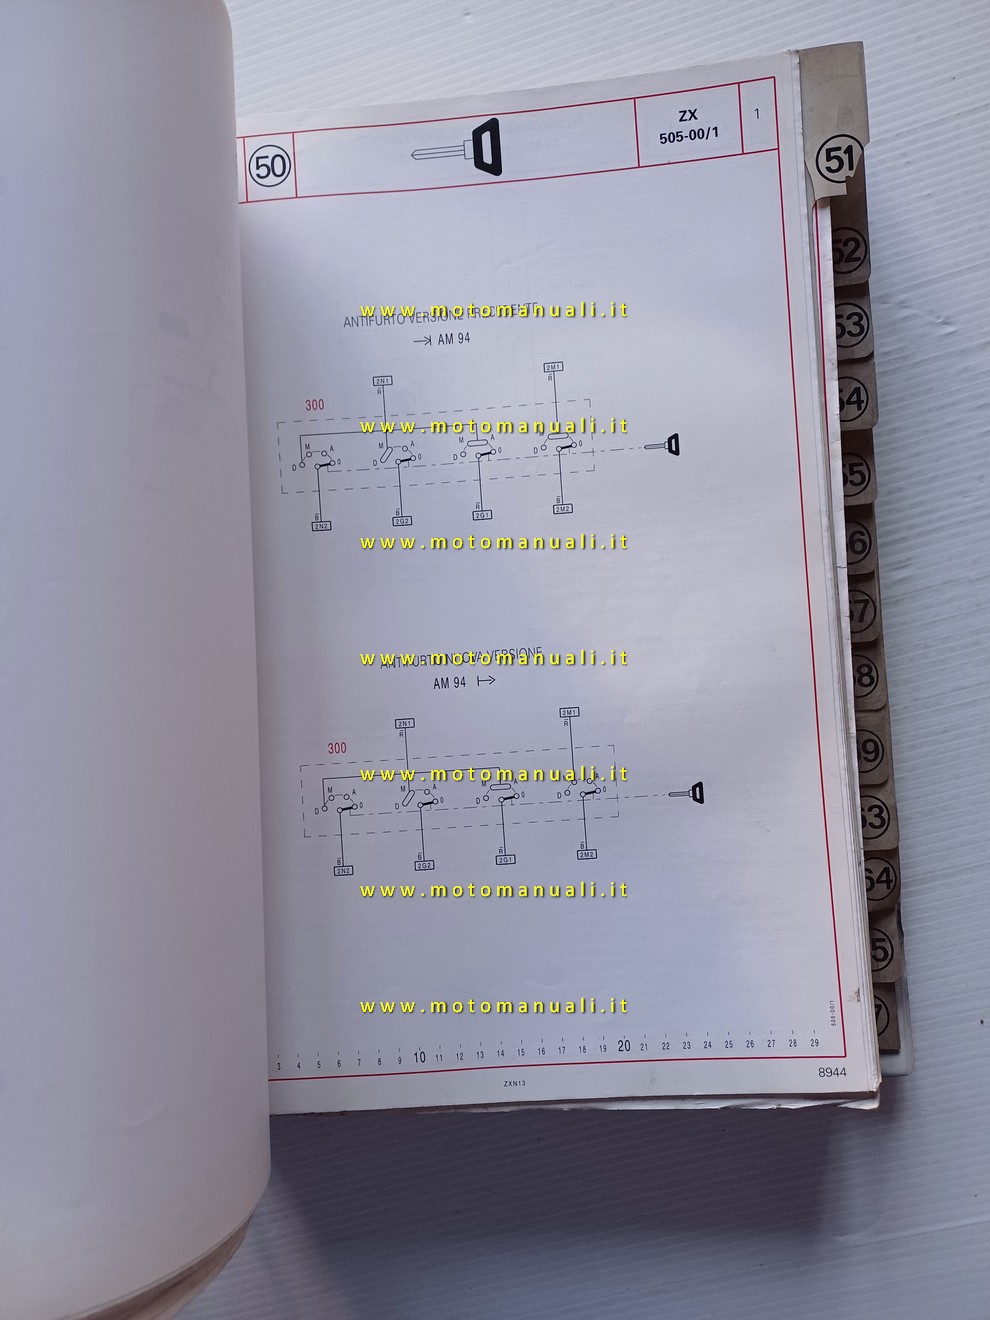 50
ZX
505-00/1
1
51
52
53
54
55
56
57
58
59
63
64
ANTIFURTO VERSIONE PRECEDENTE
www.motomanuali.it
AM 94
2N1
2M1
R
R
300
www.motomanuali.it
M A D O
M A D O
M A D O
D O
B
B
R
B
2N2
2G2
2G1
2M2
www.motomanuali.it
ANTIFURTO NUOVA VERSIONE
www.motomanuali.it
AM 94
2N1
2M1
R
R
300
www.motomanuali.it
M A D O
M A D O
M A D O
A D O
B
B
R
B
2N2
2G2
2G1
2M2
www.motomanuali.it
www.motomanuali.it
505-00/1
3 4 5 6 7 8 9 10 11 12 13 14 15 16 17 18 19 20 21 22 23 24 25 26 27 28 29
ZXN13
8944